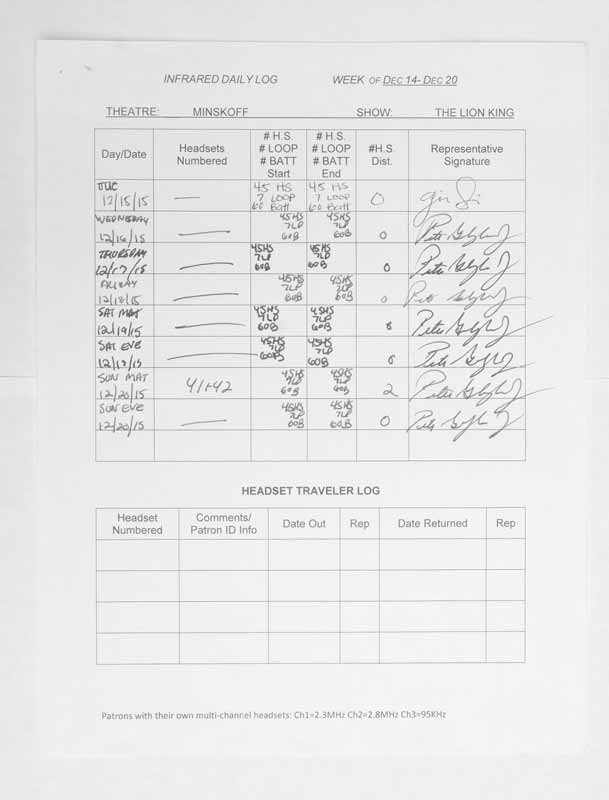 INFRARED DAILY LOG WEEK OF DEC 14- DEC 20
THEATRE: MINSKOFF SHOW: THE LION KING
Day/Date Headsets Numbered # H.S. # LOOP # BATT Start # H.S. # LOOP # BATT End #H.S. Dist. Representative Signature
TUE 12/15/15 — 45 HS 7 LOOP 60 Batt 45 HS 7 LOOP 60 Batt 0
WEDNESDAY 12/16/15 — 45HS 7LP 60B 45HS 7LP 60B 0
THURSDAY 12/17/15 — 45HS 7LP 60B 45HS 7LP 60B 0
FRIDAY 12/18/15 — 45HS 7LP 60B 45HS 7LP 60B 0
SAT MAT 12/19/15 — 45HS 7LP 60B 45HS 7LP 60B
SAT EVE — 45HS 7LP 60B 45HS 7LP 60B
SUN MAT 12/20/15 41+42 45HS 7LP 60B 45HS 7LP 60B 2
SUN EVE 12/20/15 — 45HS 7LP 60B 45HS 7LP 60B 0
HEADSET TRAVELER LOG
Headset Numbered Comments/ Patron ID Info Date Out Rep Date Returned Rep
Patrons with their own multi-channel headsets: Ch1=2.3MHz Ch2=2.8MHz Ch3=95KHz